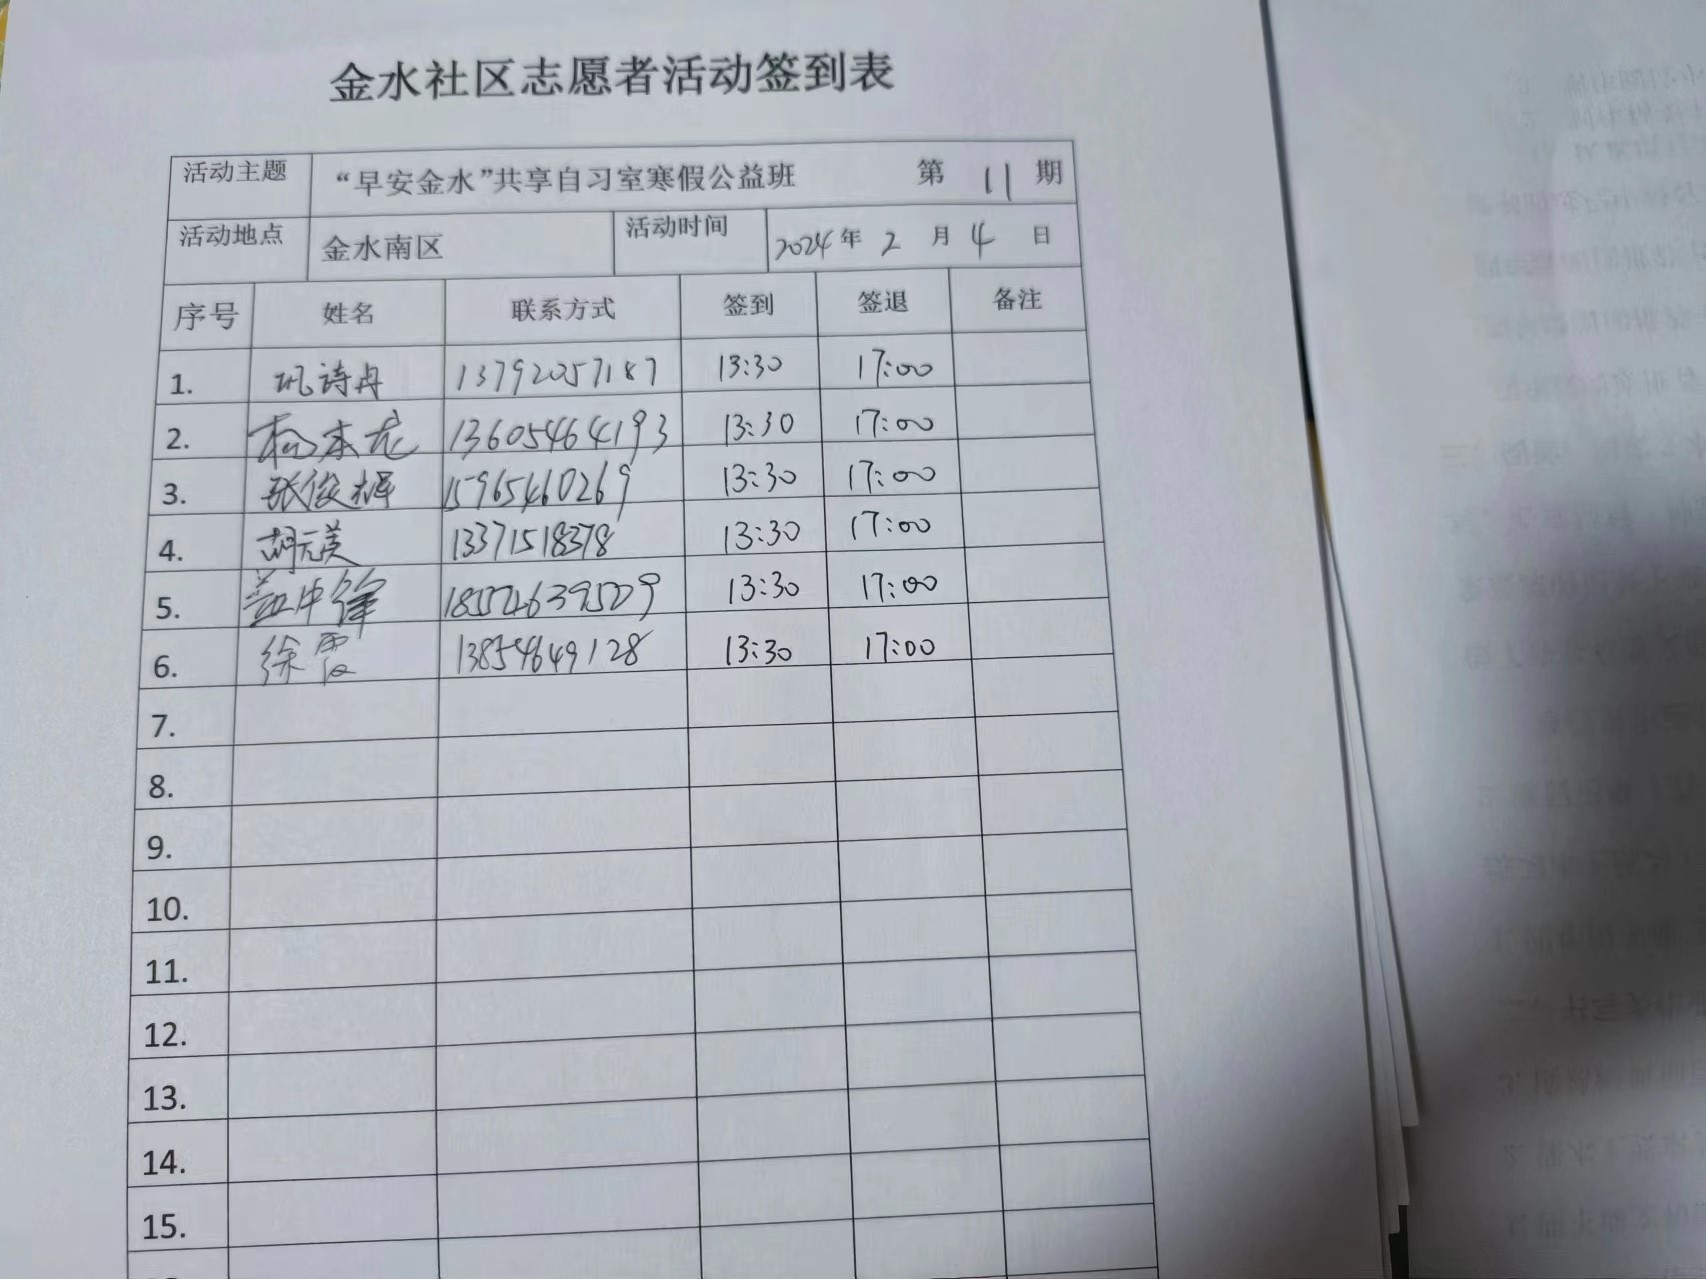 金水社区志愿者活动签到表
活动主题 “早安金水”共享自习室寒假公益班 第 11 期
活动地点 金水南区 活动时间 2024年 2 月 4 日
序号 姓名 联系方式 签到 签退 备注
1. 巩诗丹 13792057187 13:30 17:00
2. 杨本龙 13605464193 13:30 17:00
3. 张俊辉 15965460269 13:30 17:00
4. 胡元美 13371518378 13:30 17:00
5. 盖中锋 13:30 17:00
6. 徐霞 13854649128 13:30 17:00
7.
8.
9.
10.
11.
12.
13.
14.
15.